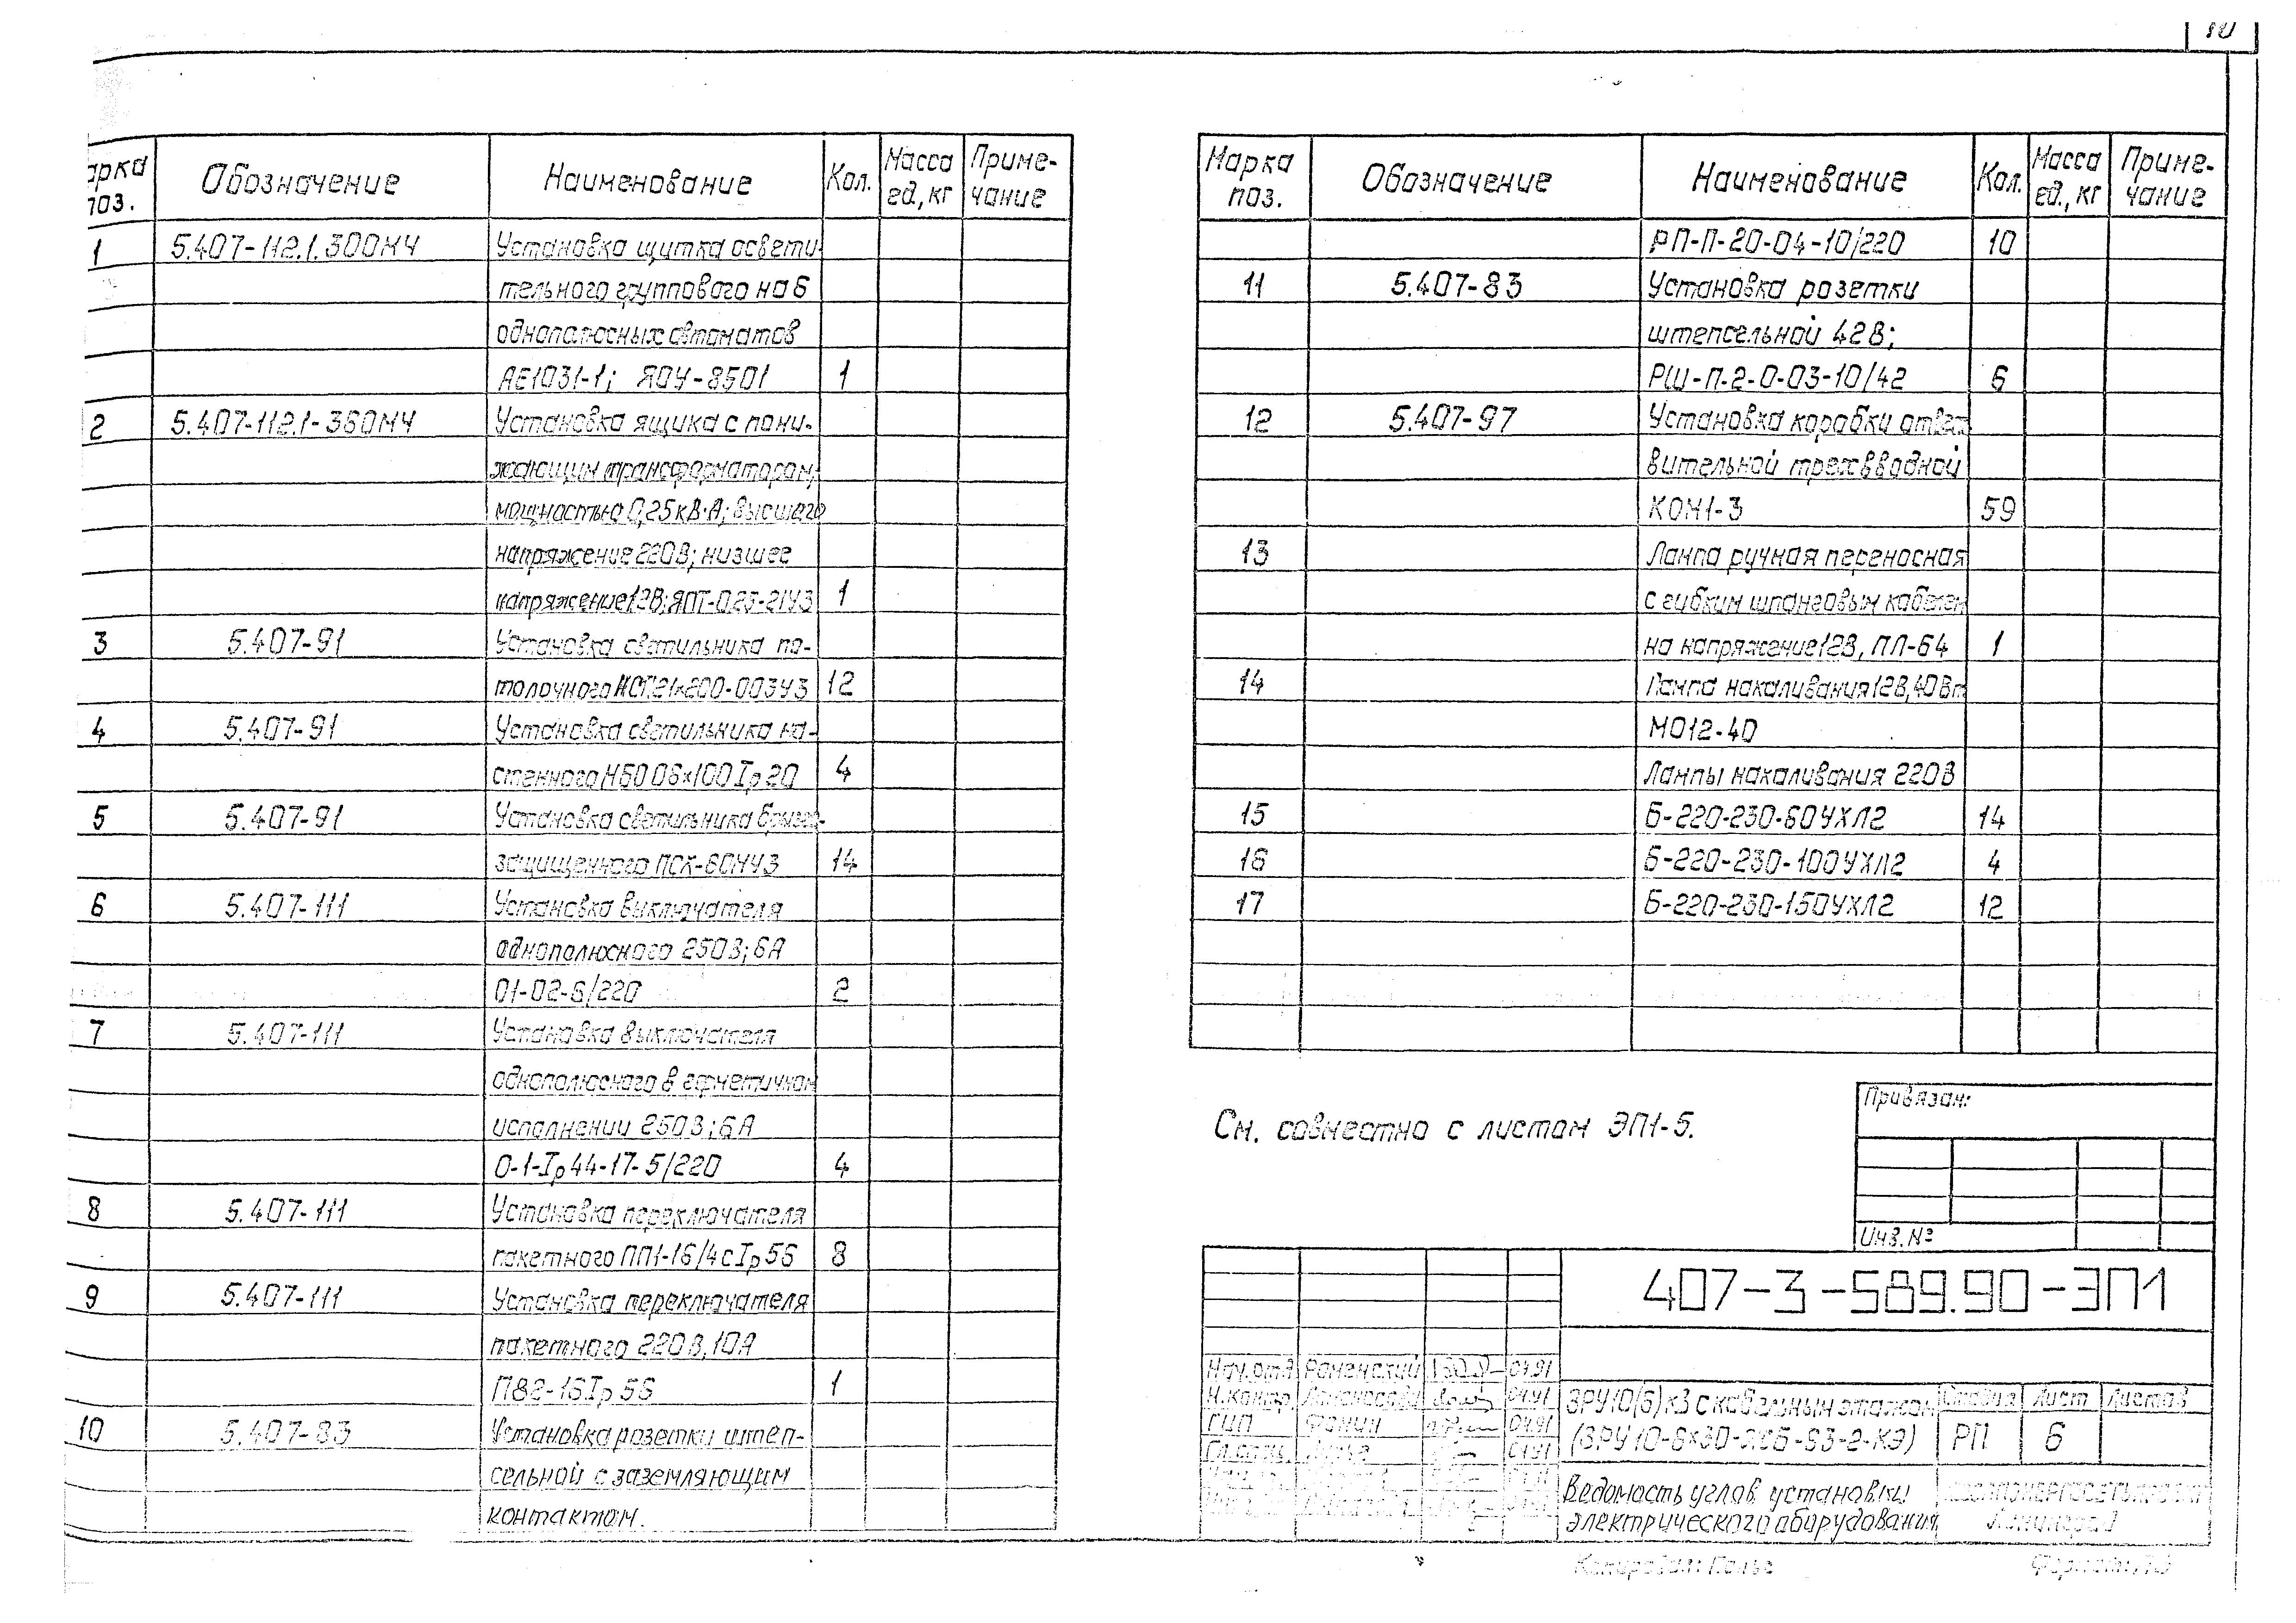 10
арка поз. Обозначение Наименование Кол. Масса ед., кг Приме-чание
1 5.407-112.1.300МЧ Установка щитка освети-
тельного группового на 6
однополюсных автоматов
АЕ1031-1; ЯОУ-8501 1
2 5.407-112.1-360МЧ Установка ящика с пони-
жающим трансформатором;
мощностью 0,25кВ·А; высшего
напряжение 220В; низшее
напряжение 12В; ЯПТ-0,25-21У3 1
3 5.407-91 Установка светильника по-
толочного НСП21х200-003У3 12
4 5.407-91 Установка светильника на-
стенного НБО06х100 Iр20 4
5 5.407-91 Установка светильника брызго-
защищенного ПСХ-60МУ3 14
6 5.407-111 Установка выключателя
однополюсного 250В; 6А
01-02-6/220 2
7 5.407-111 Установка выключателя
однополюсного в герметичном
исполнении 250В; 6А
0-1-Iр44-17-5/220 4
8 5.407-111 Установка переключателя
пакетного ПП1-16/4с Iр56 8
9 5.407-111 Установка переключателя
пакетного 220В, 10А
ПВ2-16 Iр56 1
10 5.407-83 Установка розетки штеп-
сельной с заземляющим
контактом.
Марка поз. Обозначение Наименование Кол. Масса ед., кг Приме-чание
РП-П-20-04-10/220 10
11 5.407-83 Установка розетки
штепсельной 42В;
РШ-П-2-0-03-10/42 6
12 5.407-97 Установка коробки ответ
вительной трехвводной
КОМ1-3 59
13 Лампа ручная переносная
с гибким шланговым кабелем
на напряжение 12В, ПЛ-64 1
14 Лампа накаливания 12В, 40Вт
МО12-40
Лампы накаливания 220В
15 Б-220-230-60УХЛ2 14
16 Б-220-230-100УХЛ2 4
17 Б-220-230-150УХЛ2 12
См. совместно с листом ЭП1-5.
Привязан:
Инв. №
407-3-589.90-ЭП1
Нач.отд. Роменский 04.91
Н.контр. 04.91
ГИП Фомин 04.91
04.91
ЗРУ 10(6) кВ с кабельным этажом
(ЗРУ 10-6х30-ЖБ-93-2-КЭ)
Стадия Лист Листов
РП 6
Ведомость углов установки
электрического оборудования
Ленинград
Копировал:
Формат: А3